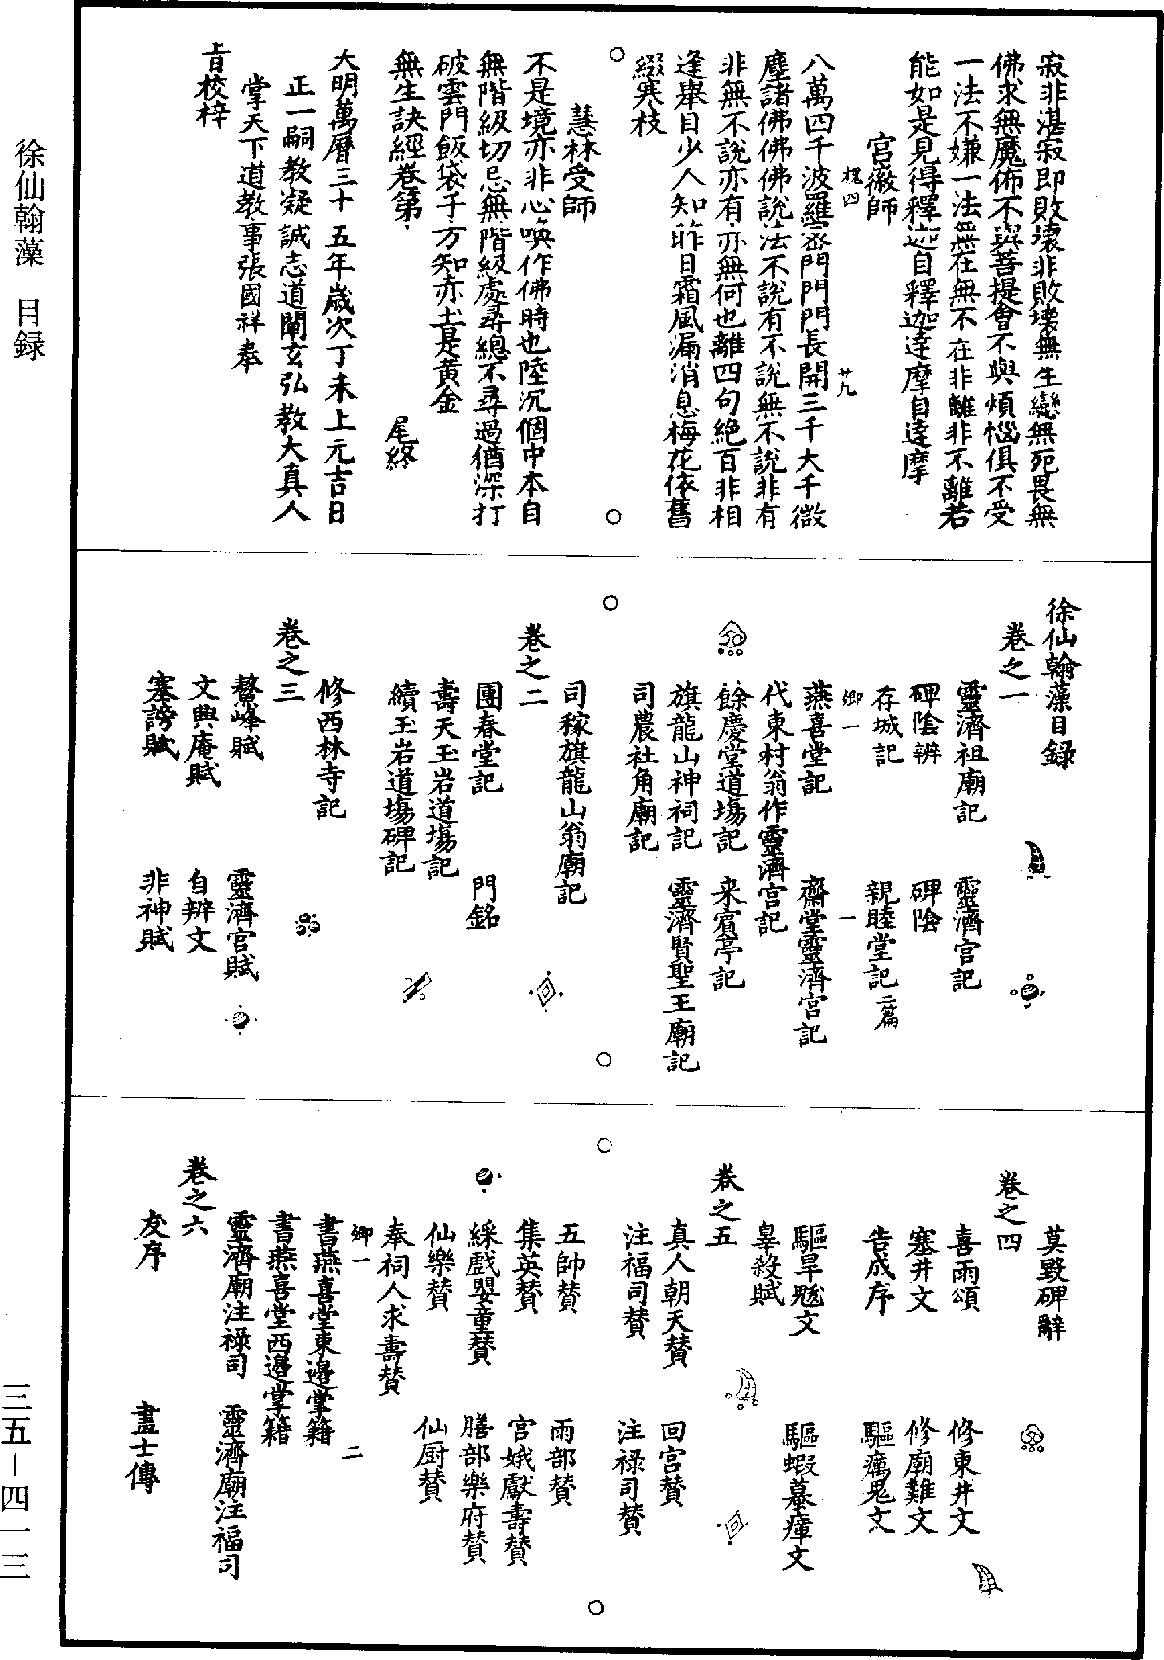 徐仙翰藻　目録
寂非湛寂即敗壞非敗壞無生戀無死畏無
佛求無魔佈不與菩提會不與煩惱俱不受
一法不嫌一法無在無不在非離非不離若
能如是見得釋迦自釋迦達摩自達摩
宮徽師
槐四　廿九
八萬四千波羅蜜門門門長開三千大千微
塵諸佛佛佛說法不說有不說無不說非有
非無不說亦有亦無何也離四句絶百非相
逢舉目少人知昨日霜風漏消息梅花依舊
綴寒枝
慧林受師
不是境亦非心喚作佛時也陸沉個中本自
無階級切忌無階級處尋總不尋過猶深打
破雲門飯袋子方知赤土是黄金
無生訣經卷第　尾終
大明萬曆三十五年歲次丁未上元吉日
正一嗣教凝誠志道闡玄弘教大真人
掌天下道教事張國祥奉
旨校梓
徐仙翰藻目録
卷之一
靈濟祖廟記　靈濟宮記
碑陰辨　碑陰
存城記　親睦堂記二篇
卿一　一
燕喜堂記　齋堂靈濟宮記
代東村翁作靈濟宮記
餘慶堂道場記　来賓亭記
旗龍山神祠記　靈濟賢聖王廟記
司農社角廟記
卷之二
司稼旗龍山翁廟記
團春堂記　門銘
壽天玉岩道場記
續玉岩道場碑記
修西林寺記
卷之三
鰲峰賦　靈濟宮賦
文興庵賦　自辨文
塞謗賦　非神賦
莫毀碑辭
卷之四
喜雨頌　修東井文
塞井文　修廟難文
告成序　驅癘鬼文
驅旱魃文　驅蝦蟇瘴文
辠殺賦
卷之五
真人朝天賛　回宮賛
注福司賛　注禄司賛
五帥賛　雨部賛
集英賛　宮娥獻壽賛
綵戲嬰童賛　膳部樂府賛
仙樂賛　仙厨賛
奉祠人求壽賛
卿一　二
書燕喜堂東邊掌籍
書燕喜堂西邊掌籍
靈濟廟注禄司　靈濟廟注福司
卷之六
友序　畫士傳
三五－四一三